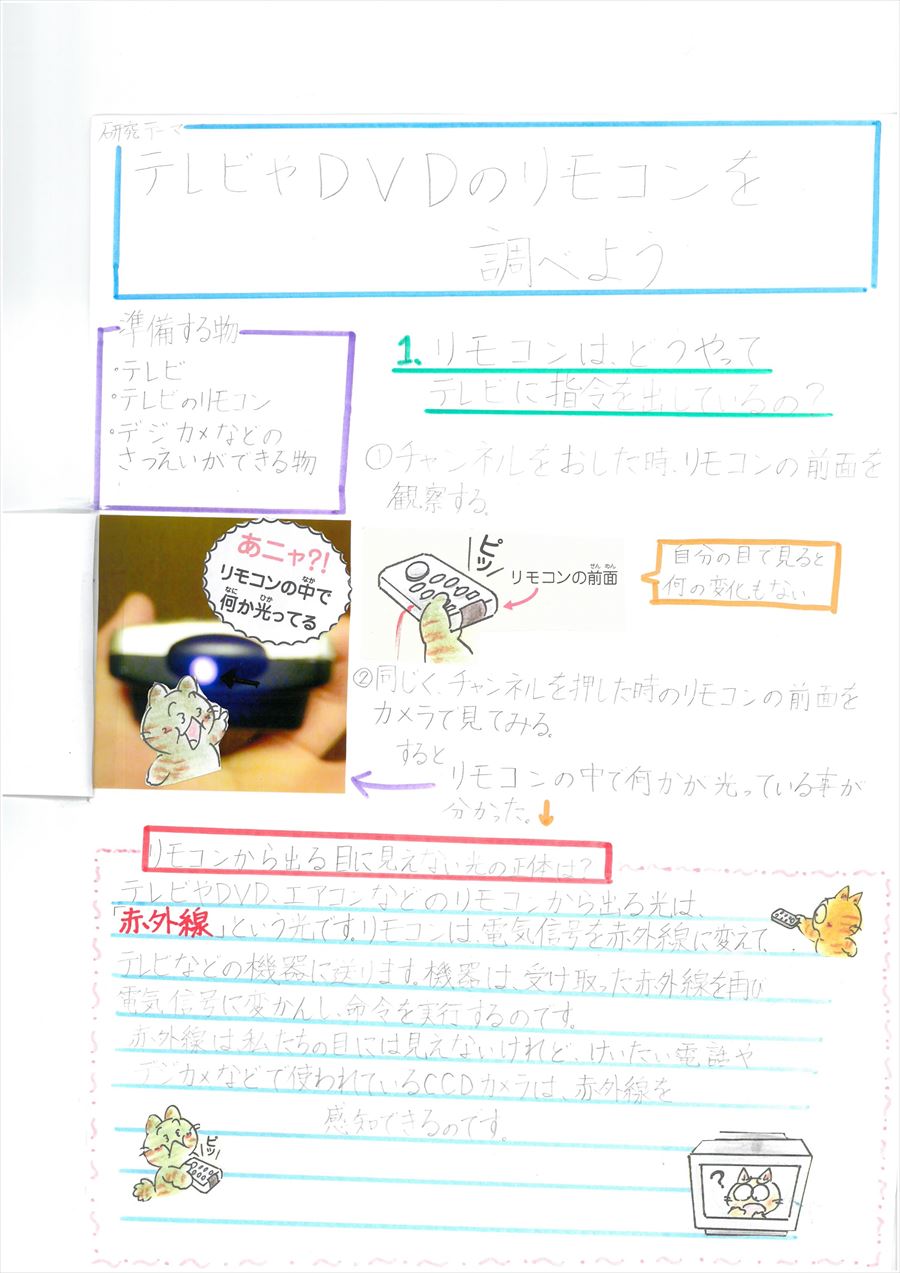 研究テーマ
テレビやDVDのリモコンを
調べよう
準備する物
・テレビ
・テレビのリモコン
・デジカメなどの
さつえいができる物
1.リモコンは、どうやって
テレビに指令を出しているの?
①チャンネルをおした時、リモコンの前面を
観察する。
あニャ?!
リモコンの中で
なか
何か光ってる
なに ひか
ピッ
リモコンの前面
ぜん めん
自分の目で見ると
何の変化もない
②同じく、チャンネルを押した時のリモコンの前面を
カメラで見てみる。
すると
リモコンの中で何かが光っている事が
分かった。
リモコンから出る目に見えない光の正体は?
テレビやDVD、エアコンなどのリモコンから出る光は、
「赤外線」という光です。リモコンは、電気信号を赤外線に変えて、
テレビなどの機器に送ります。機器は、受け取った赤外線を再び
電気信号に変かんし、命令を実行するのです。
赤外線は私たちの目には見えないけれど、けいたい電話や
デジカメなどで使われているCCDカメラは、赤外線を
感知できるのです。
ピッ
?